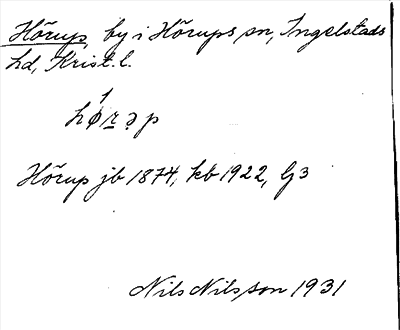 Hörup, by i Hörups sn, Ingelstads
hd, Krist. l.
hø̀rəp
Hörup jb 1874, kb 1922, Gj 3
Nils Nilsson 1931